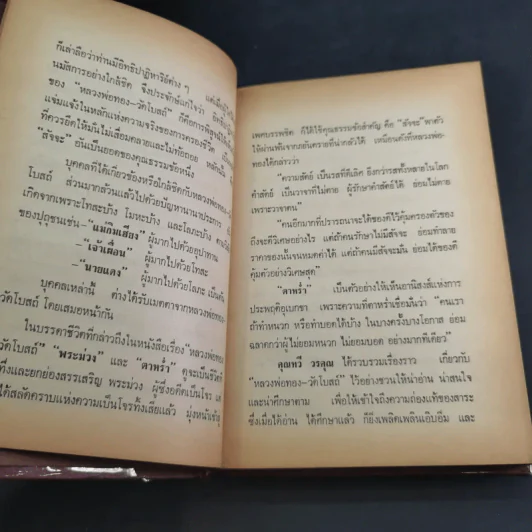 ก็เล่าลือว่าท่านมีอิทธิปาฏิหาริย์ต่าง ๆ
นมัสการอย่างใกล้ชิด จึงประจักษ์แก่ใจว่า
ของ "หลวงพ่อทอง-วัดโบสถ์" ก็คือการพิสูจน์ให้
แจ่มแจ้งในหลักแห่งความจริงของการครองชีวิต
ที่ควรยึดให้มั่นไม่เสื่อมคลายและไม่ท้อถอย หลักนั้น
"สัจจะ" อันเป็นยอดของคุณธรรมข้อหนึ่ง
บุคคลที่ได้เกี่ยวข้องหรือใกล้ชิดกับหลวงพ่อทอง-
โบสถ์ ส่วนมากล้วนแล้วไปด้วยปัญหานานาประการ
เกิดจากเพราะโทสะบ้าง โมหะบ้าง และโลภะบ้าง
ของปุถุชนเช่น—"แม่กิมเฮียง" ผู้มากไปด้วยอุปาทาน
—"เจ้าเผื่อน" ผู้มากไปด้วยโทสะ
—"นายแดง" ผู้มากไปด้วยโลภะ เป็นต้น
บุคคลเหล่านี้ ต่างได้รับเมตตาจากหลวงพ่อทอง-
วัดโบสถ์ โดยเสมอหน้ากัน
ในบรรดาชีวิตที่กล่าวถึงในหนังสือเรื่อง "หลวงพ่อทอง
วัดโบสถ์" "พระม่วง" และ "ตาพร่ำ" ดูจะเป็นชีวิตที่
ทึ่งและยกย่องสรรเสริญ พระม่วง ผู้ซึ่งอดีตเป็นโจร แต่
ได้สลัดคราบแห่งความเป็นโจรทิ้งเสียแล้ว มุ่งหน้าเข้าสู่
เพศบรรพชิต ก็ได้ใช้คุณธรรมข้อสำคัญ คือ "สัจจะ" พาตัว
ให้ผ่านพ้นจากภยันตรายที่น่ากลัวได้ เหมือนดังที่หลวงพ่อ-
ทองได้กล่าวว่า
"ความสัตย์ เป็นรสที่ดีเลิศ ยิ่งกว่ารสทั้งหลายในโลก
คำสัตย์ เป็นวาจาที่ไม่ตาย ผู้รักษาคำสัตย์ได้ ย่อมไม่ตาย
เพราะวาจาตน"
"คนอีกมากที่ปรารถนาจะได้ของดีไว้คุ้มครองตัวของ
ถึงจะดีวิเศษอย่างไร แต่ถ้าตัวคนรักษาไม่มีสัจจะ ย่อมทำลาย
ราคาของนั้นจนหมดค่าได้ แต่ถ้าคนมีสัจจะมั่น ย่อมได้ของดี
คุ้มตัวอย่างวิเศษสุด"
"ตาพร่ำ" เป็นตัวอย่างให้เห็นอานิสงส์แห่งการ
ประพฤติอุเบกขา เพราะความที่ตาพร่ำเชื่อมั่นว่า "คนเรา
ถ้าทำหนวก หรือทำบอดได้บ้าง ในบางครั้งบางโอกาส ย่อม
ฉลาดกว่าผู้ ไม่ยอมหนวก ไม่ยอมบอด อย่างมากทีเดียว"
คุณทวี วรคุณ ได้รวบรวมเรื่องราว เกี่ยวกับ
"หลวงพ่อทอง-วัดโบสถ์" ไว้อย่างชวนให้น่าอ่าน น่าสนใจ
และน่าศึกษาตาม เพื่อให้เข้าใจถึงความถ่องแท้ของสาระ
ซึ่งเมื่อได้อ่าน ได้ศึกษาแล้ว ก็ยิ่งเพลิดเพลินเอิบอิ่ม และ